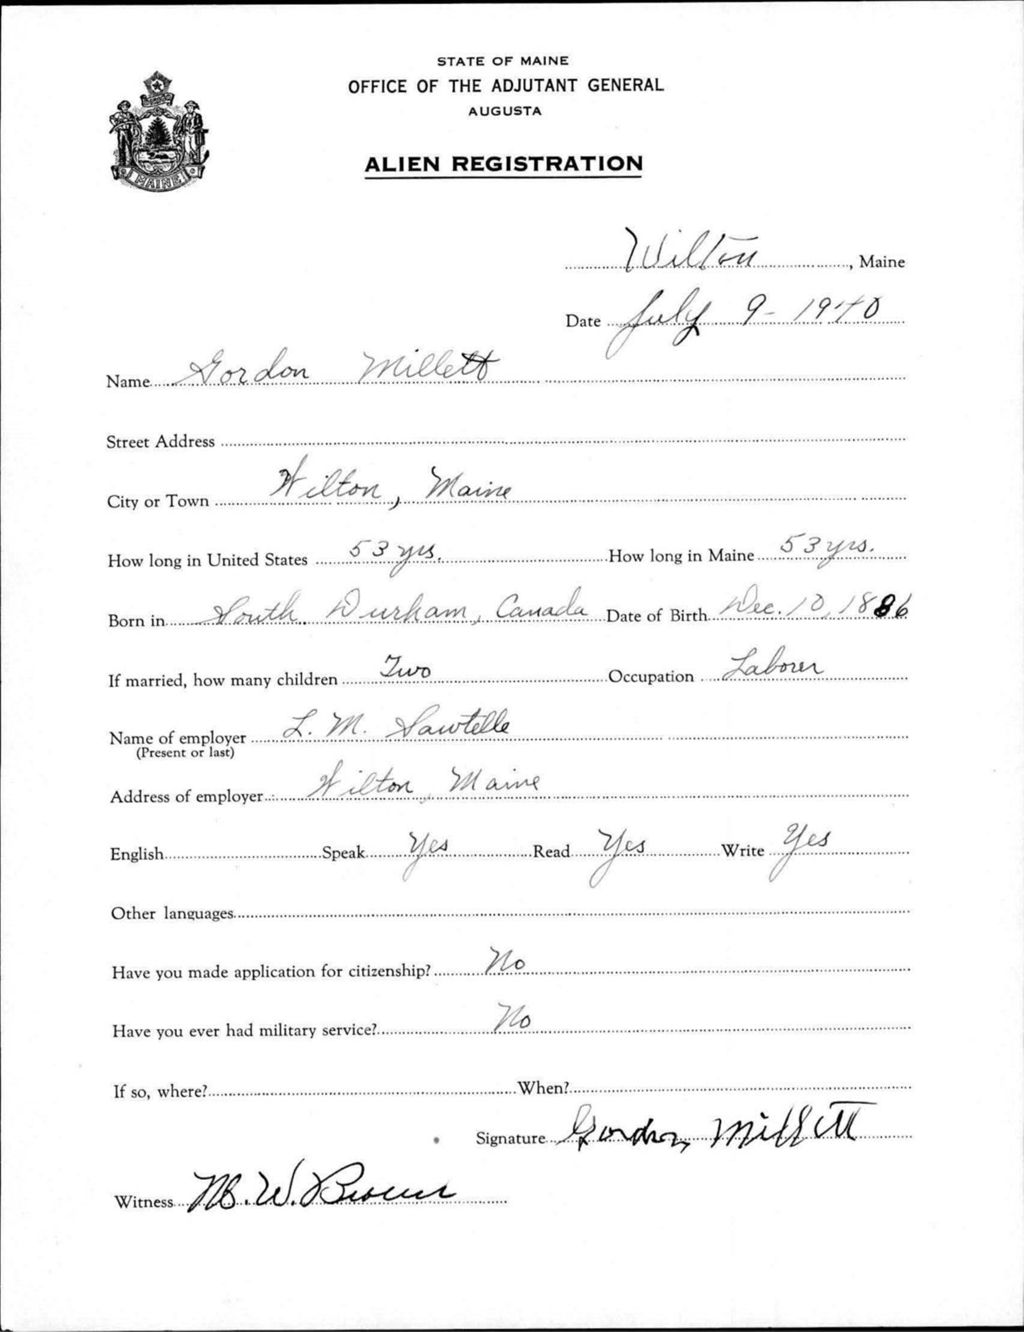 STATE OF MAINE
OFFICE OF THE ADJUTANT GENERAL
AUGUSTA
ALIEN REGISTRATION
MAINE
Wilton, Maine
Date July 9-1940
Name Gordon Millett
Street Address
City or Town Wilton, Maine
How long in United States 53 yrs. How long in Maine 53 yrs.
Born in South Durham, Canada Date of Birth Dec. 10, 1886
If married, how many children Two Occupation Laborer
Name of employer L. M. Sawtelle
(Present or last)
Address of employer Wilton, Maine
English Speak Yes Read Yes Write Yes
Other languages
Have you made application for citizenship? No
Have you ever had military service? No
If so, where? When?
Signature Gordon Millett
Witness W. Brown